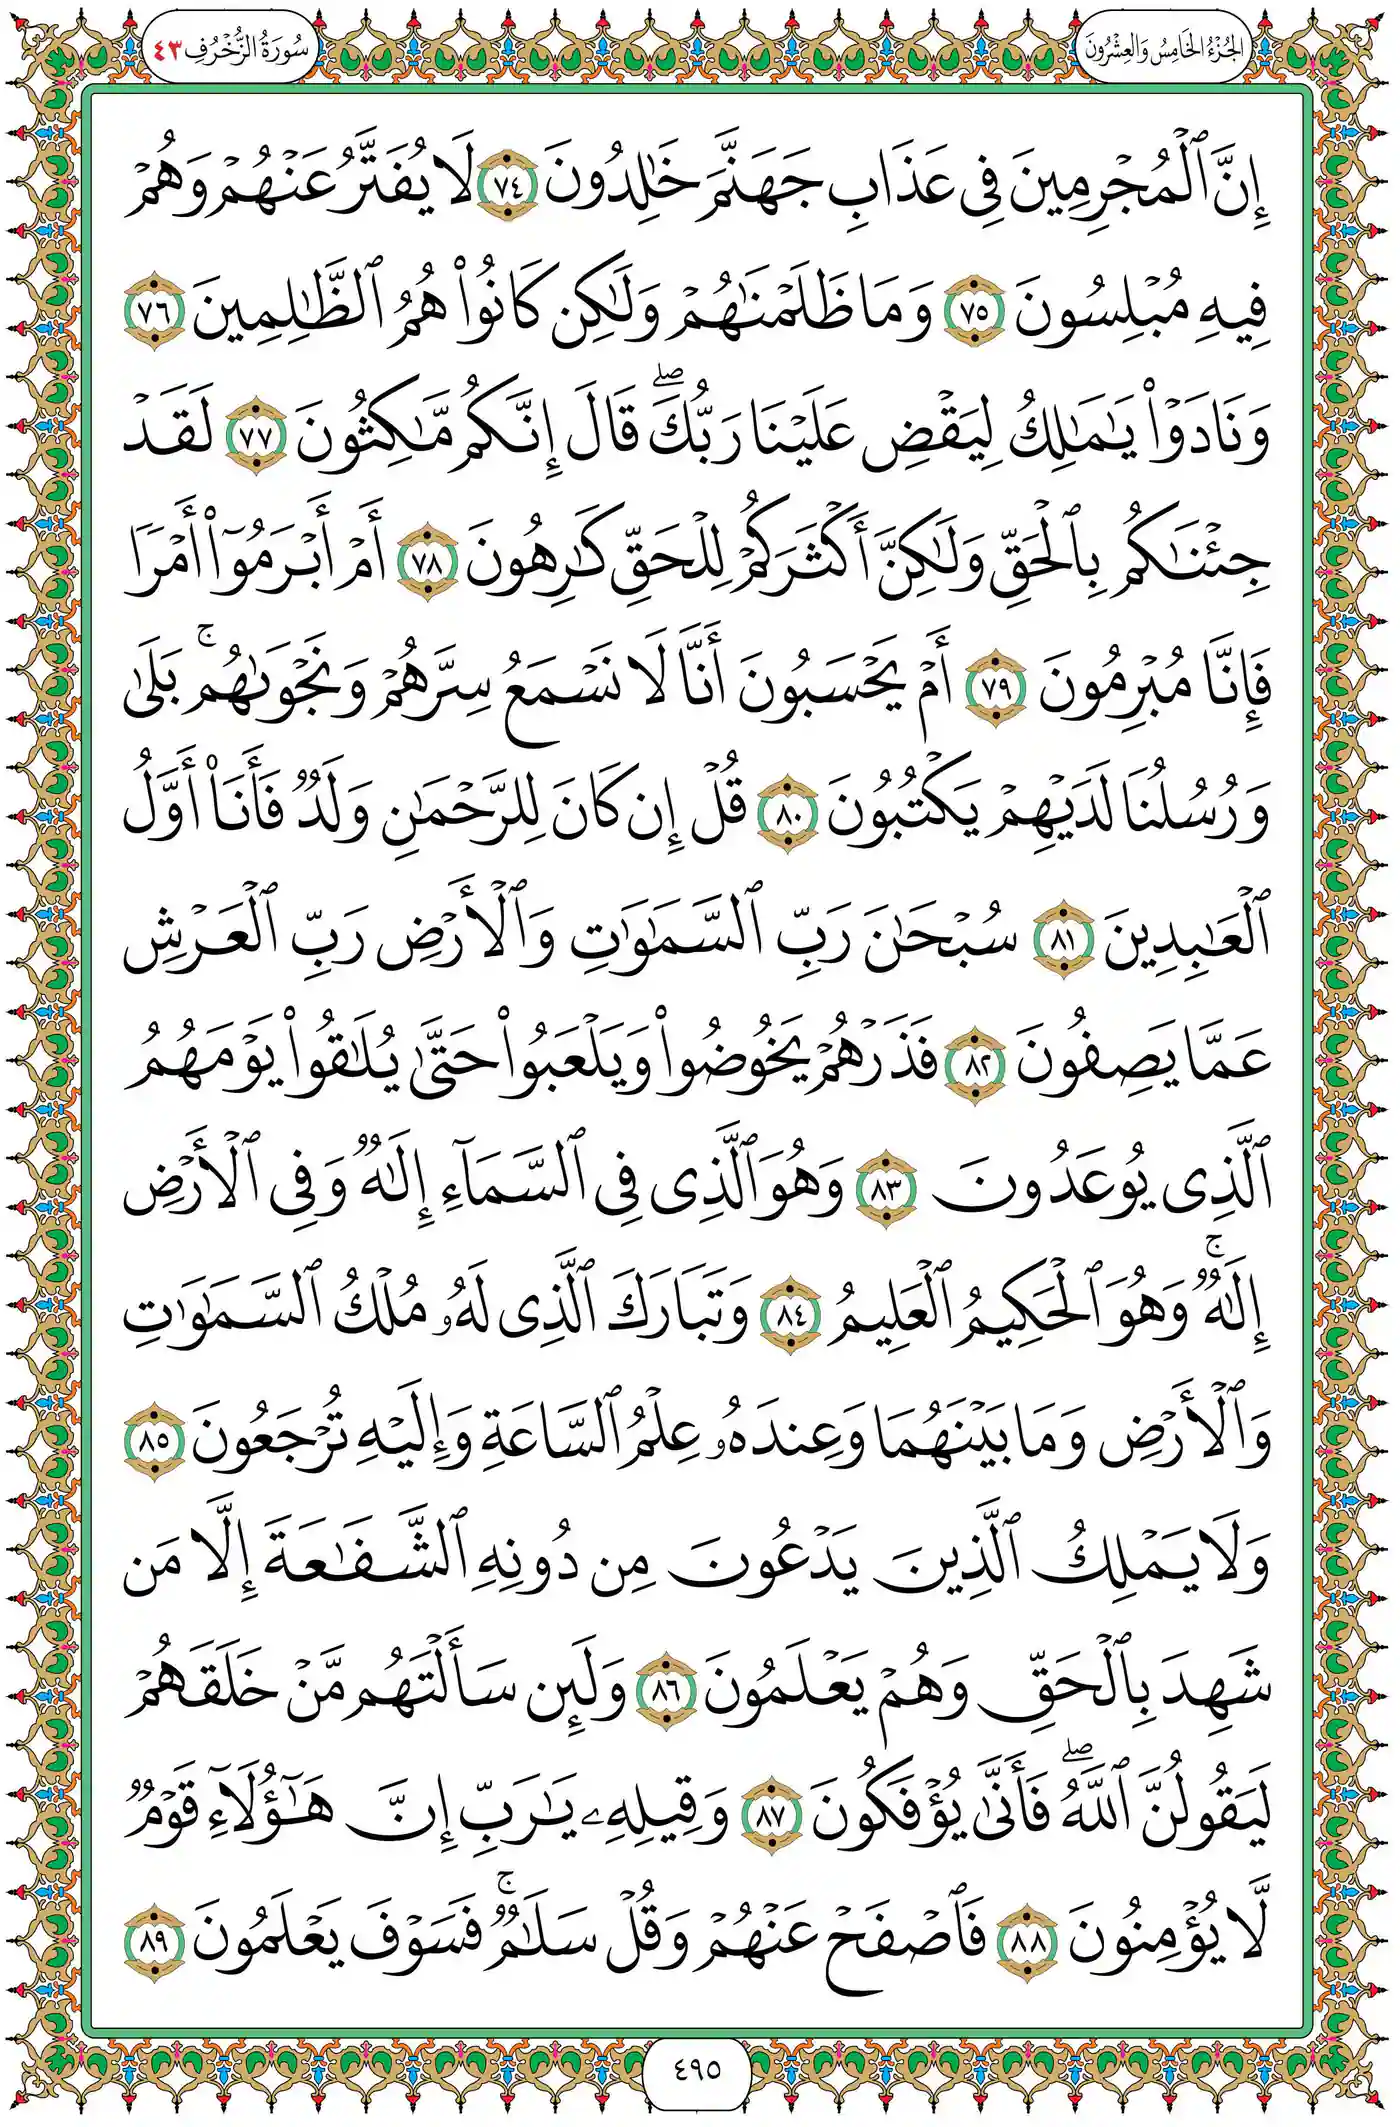 الجُزْءُ الخَامِسُ وَالعِشْرُونَ
سُورَةُ الزُّخْرُفِ ٤٣
إِنَّ ٱلْمُجْرِمِينَ فِي عَذَابِ جَهَنَّمَ خَٰلِدُونَ ٧٤ لَا يُفَتَّرُ عَنْهُمْ وَهُمْ
فِيهِ مُبْلِسُونَ ٧٥ وَمَا ظَلَمْنَٰهُمْ وَلَٰكِن كَانُوا۟ هُمُ ٱلظَّٰلِمِينَ ٧٦
وَنَادَوْا۟ يَٰمَٰلِكُ لِيَقْضِ عَلَيْنَا رَبُّكَ ۖ قَالَ إِنَّكُم مَّٰكِثُونَ ٧٧ لَقَدْ
جِئْنَٰكُم بِٱلْحَقِّ وَلَٰكِنَّ أَكْثَرَكُمْ لِلْحَقِّ كَٰرِهُونَ ٧٨ أَمْ أَبْرَمُوٓا۟ أَمْرًا
فَإِنَّا مُبْرِمُونَ ٧٩ أَمْ يَحْسَبُونَ أَنَّا لَا نَسْمَعُ سِرَّهُمْ وَنَجْوَىٰهُم ۚ بَلَىٰ
وَرُسُلُنَا لَدَيْهِمْ يَكْتُبُونَ ٨٠ قُلْ إِن كَانَ لِلرَّحْمَٰنِ وَلَدٌ فَأَنَا۠ أَوَّلُ
ٱلْعَٰبِدِينَ ٨١ سُبْحَٰنَ رَبِّ ٱلسَّمَٰوَٰتِ وَٱلْأَرْضِ رَبِّ ٱلْعَرْشِ
عَمَّا يَصِفُونَ ٨٢ فَذَرْهُمْ يَخُوضُوا۟ وَيَلْعَبُوا۟ حَتَّىٰ يُلَٰقُوا۟ يَوْمَهُمُ
ٱلَّذِى يُوعَدُونَ ٨٣ وَهُوَ ٱلَّذِى فِى ٱلسَّمَآءِ إِلَٰهٌ وَفِى ٱلْأَرْضِ
إِلَٰهٌ ۚ وَهُوَ ٱلْحَكِيمُ ٱلْعَلِيمُ ٨٤ وَتَبَارَكَ ٱلَّذِى لَهُۥ مُلْكُ ٱلسَّمَٰوَٰتِ
وَٱلْأَرْضِ وَمَا بَيْنَهُمَا وَعِندَهُۥ عِلْمُ ٱلسَّاعَةِ وَإِلَيْهِ تُرْجَعُونَ ٨٥
وَلَا يَمْلِكُ ٱلَّذِينَ يَدْعُونَ مِن دُونِهِ ٱلشَّفَٰعَةَ إِلَّا مَن
شَهِدَ بِٱلْحَقِّ وَهُمْ يَعْلَمُونَ ٨٦ وَلَئِن سَأَلْتَهُم مَّنْ خَلَقَهُمْ
لَيَقُولُنَّ ٱللَّهُ ۖ فَأَنَّىٰ يُؤْفَكُونَ ٨٧ وَقِيلِهِۦ يَٰرَبِّ إِنَّ هَٰٓؤُلَآءِ قَوْمٌ
لَّا يُؤْمِنُونَ ٨٨ فَٱصْفَحْ عَنْهُمْ وَقُلْ سَلَٰمٌ ۚ فَسَوْفَ يَعْلَمُونَ ٨٩
٤٩٥